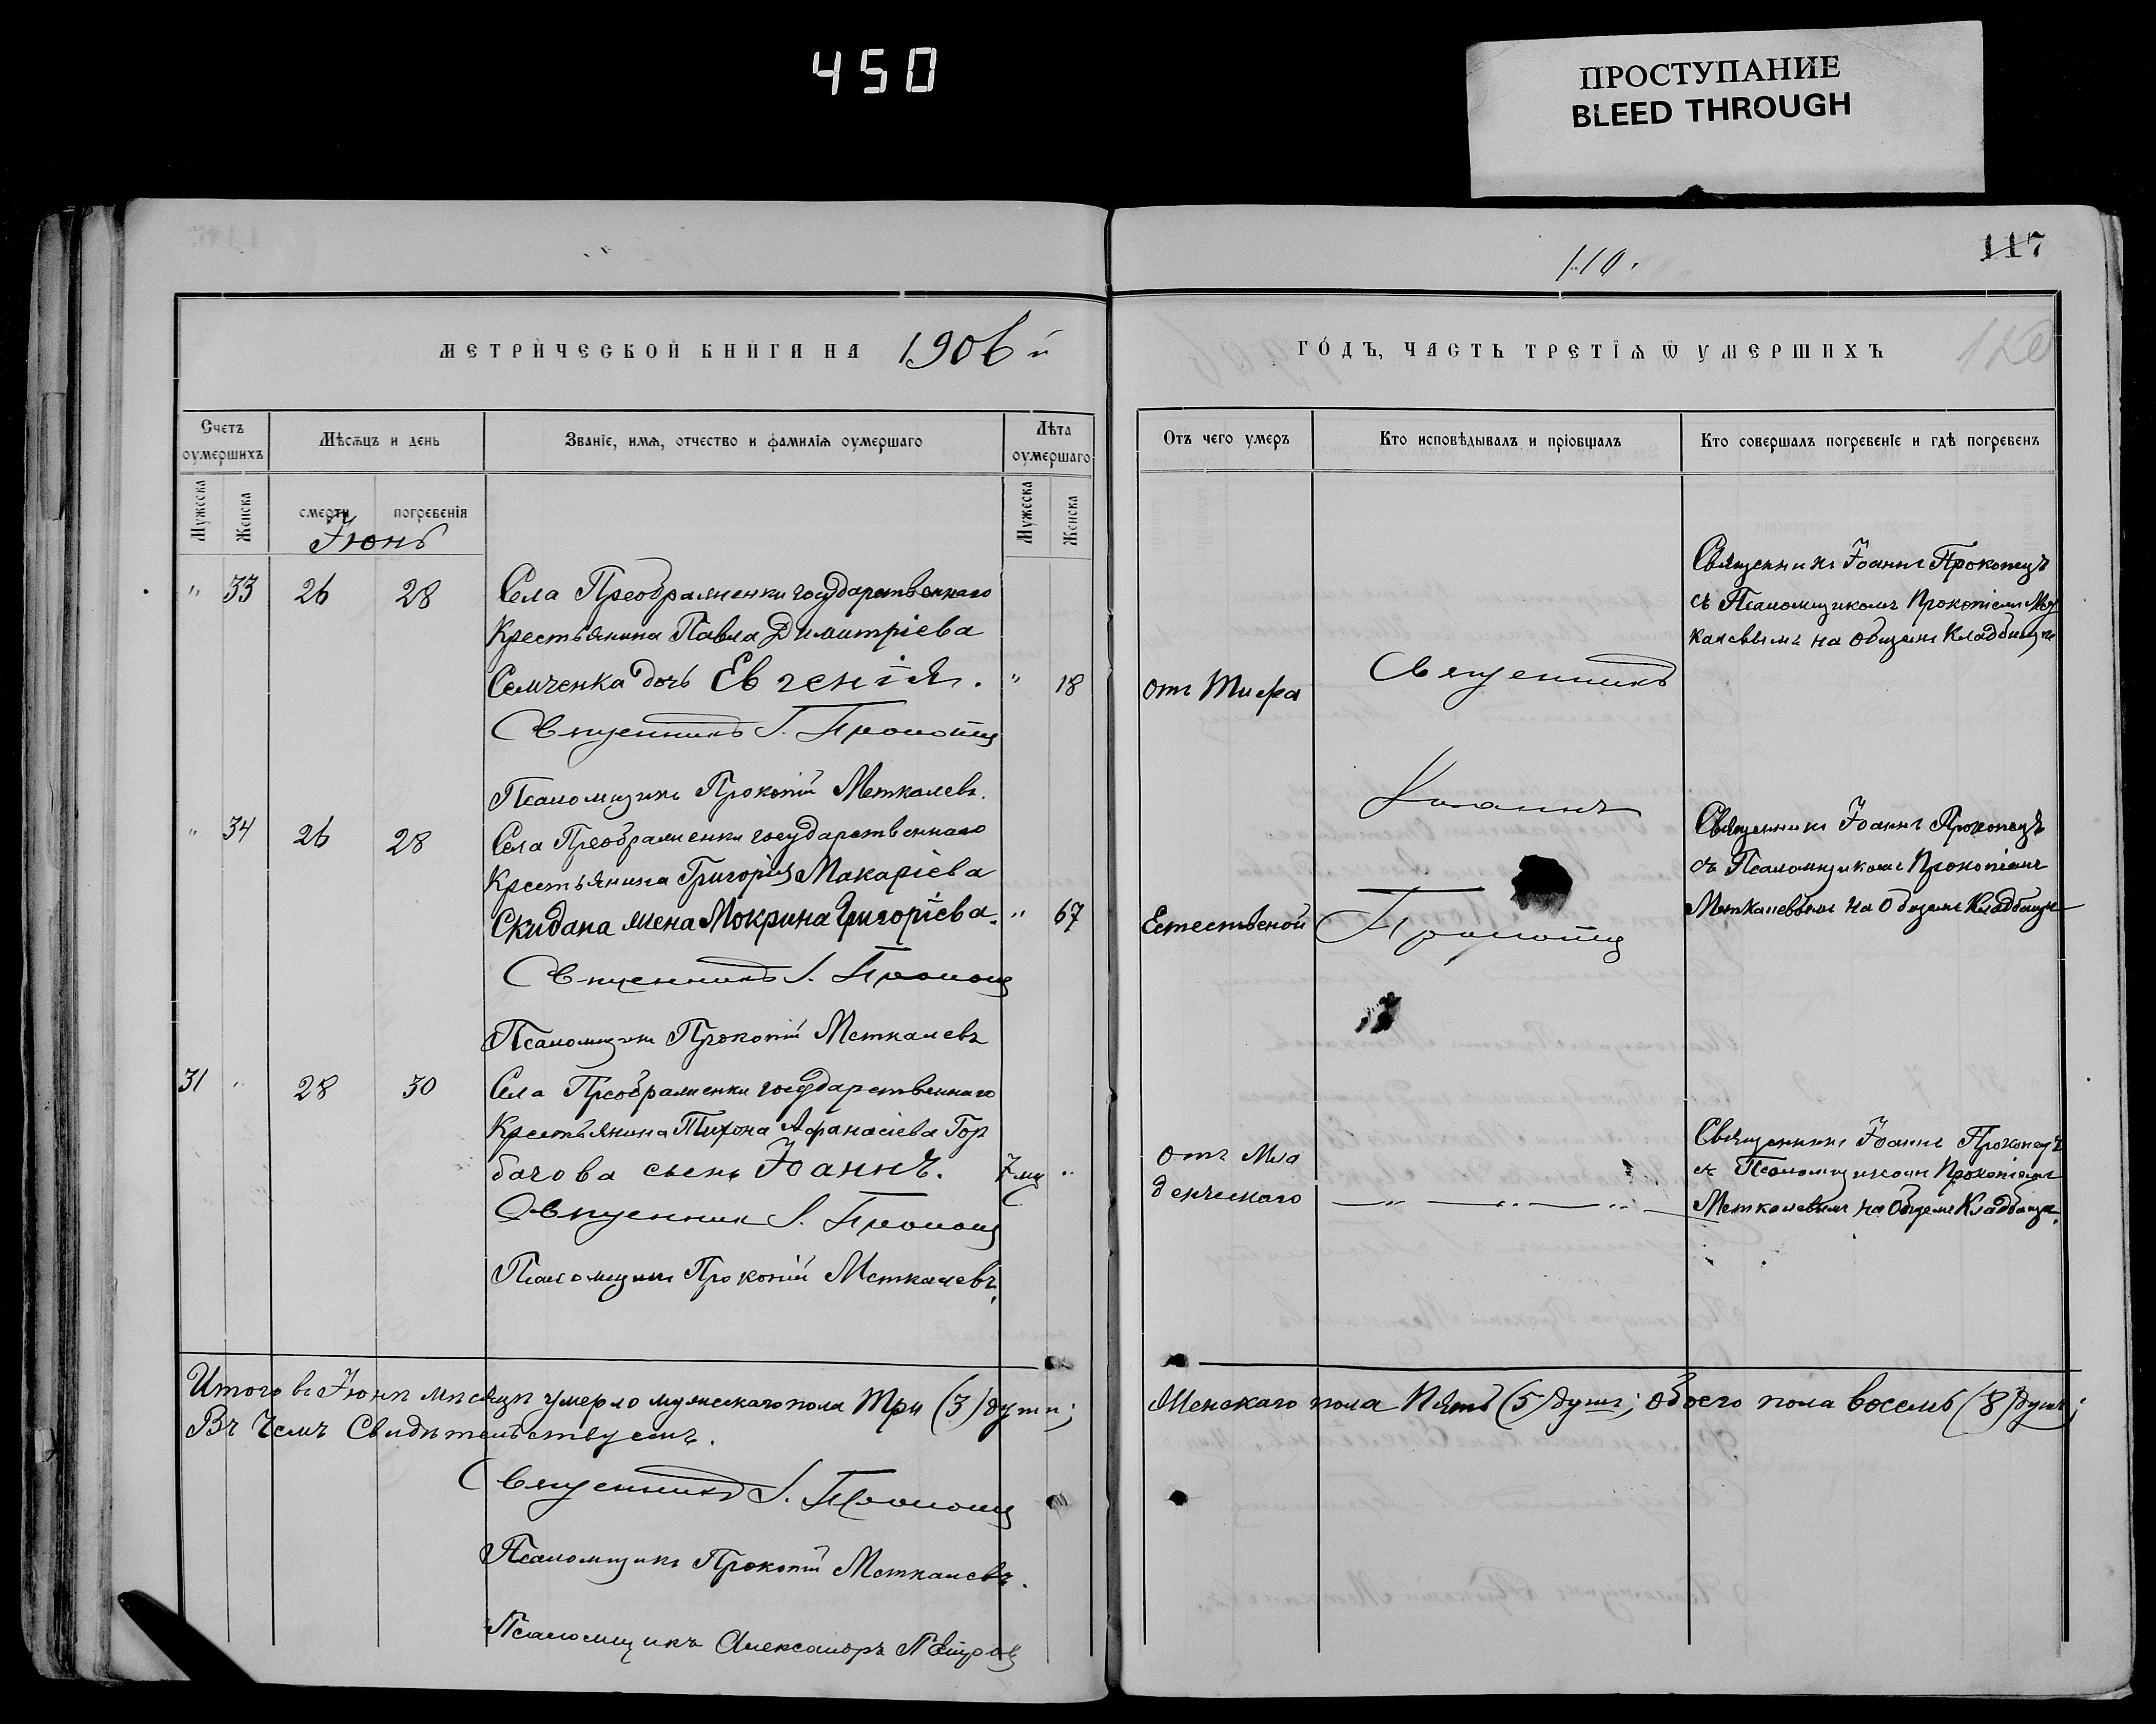 450
ПРОСТУПАНИЕ
BLEED THROUGH
110.
117
МЕТРИЧЕСКОЙ КНИГИ НА 1906 й
ГОДЪ, ЧАСТЬ ТРЕТІЯ Ѿ УМЕРШИХЪ
Счетъ оумершихъ
Мѣсяцъ и день
Званіе, имя, отчество и фамилія оумершаго
Лѣта оумершаго
Отъ чего умеръ
Кто исповѣдывалъ и пріобщалъ
Кто совершалъ погребеніе и гдѣ погребенъ
Мужеска
Женска
смерти
погребенія
Мужеска
Женска
Іюнь
" 33 26 28 Села Преображенки государственнаго
Крестьянина Павла Димитріева
Семченка дочь Евгенія. " 18
Священникъ І. Прокопец
Псаломщикъ Прокопій Меткалевъ.
отъ Тифа
Священникъ
Іоаннъ
Прокопец
Священникъ Іоаннъ Прокопецъ
съ Псаломщикомъ Прокопіемъ
калевымъ на общемъ Кладбищѣ
" 34 26 28 Села Преображенки государственнаго
Крестьянина Григорія Макаріева
Скидана жена Мокрина Григоріева. " 67
Священникъ І. Прокопец
Псаломщикъ Прокопій Меткалевъ
Естественой
Священникъ Іоаннъ Прокопецъ
съ Псаломщикомъ Прокопіемъ
Меткалевымъ на Общемъ Кладбищѣ
31 " 28 30 Села Преображенки государственнаго
Крестьянина Тихона Афанасіева Гор
бачова сынъ Іоаннъ. 7 мц "
Священник І. Прокопец
Псаломщикъ Прокопій Меткалевъ.
отъ Мла
денческаго
Священникъ Іоаннъ Прокопецъ
съ Псаломщикомъ Прокопіемъ
Меткалевымъ на Общемъ Кладбищѣ.
Итого въ Іюнѣ мѣсяцѣ умерло мужескаго пола Три (3) души;
Женскаго пола Пять (5) душъ; обоего пола восемь (8) душъ;
Въ чемъ Свидѣтельствуемъ.
Священникъ І. Прокопец
Псаломщикъ Прокопій Меткалевъ.
Псаломщикъ Александръ Петров